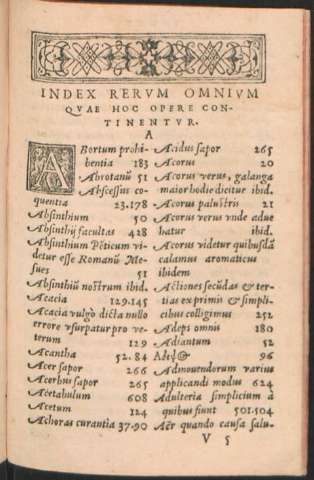 INDEX RERVM OMNIVM
QVAE HOC OPERE CON-
TINENTVR.
A
ABortum prohi-
bentia 183
Abrotanũ 51
Abscessus co-
quentia 23.178
Absinthium 50
Absinthij facultas 428
Absinthium Põticum vi-
detur esse Romanũ Me-
sues 51
Absinthiũ nostrum ibid.
Acacia 129.145
Acacia vulgò dicta nullo
errore vsurpatur pro ve-
terum 129
Acantha 52.84
Acer sapor 266
Acerbus sapor 265
Acetabulum 608
Acetum 124
Achoras curantia 37.90
Acidus sapor 265
Acorus 20
Acorus verus, galanga
maior hodie dicitur ibid.
Acorus palustris 21
Acorus verus vnde adue
hatur ibid.
Acorus videtur quibusdã
calamus aromaticus
ibidem
Actiones secũdas & ter-
tias ex primis & simpli-
cibus colligimus 252
Adeps omnis 180
Adiantum 52
96
Admouendorum varius
applicandi modus 624
Adulteria simplicium à
quibus fiunt 501.504
Aër quando causa salu-
V 5